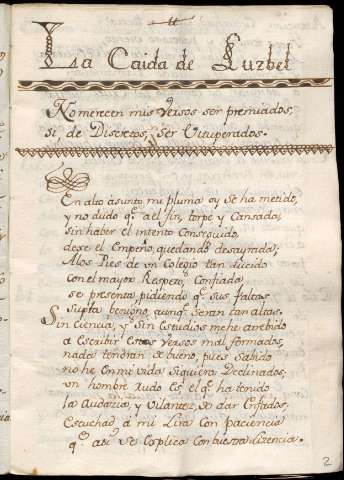 La Caida de Luzbel
No merecen mis versos ser premiados,
si, de Discretos, ser Vituperados.
En alto asunto mi pluma oy se ha metido,
y no dudo q.e al fin, torpe y Cansada,
sin haber el intento Conseguido,
dexe el Empeño, quedando desayrada;
A los Pies de un Colegio tan lucido
con el mayor Respeto, Confiada
se presenta, pidiendo q.e sus faltas
Supla benigno, aunq.e Seran tan altas.
Sin Ciencia, y Sin Estudios me he atrebido
a Escribir Estos Versos mal formados,
nada tendran de bueno, pues Sabido
no he en mi vida Siquiera Declinados;
un hombre rudo Es el q.e ha tenido
la Audazia, y Vilantez, de dar Enfados,
Escuchad a mi Lira con paciencia
q.e asi se Explica Con buestra Lizencia.
2